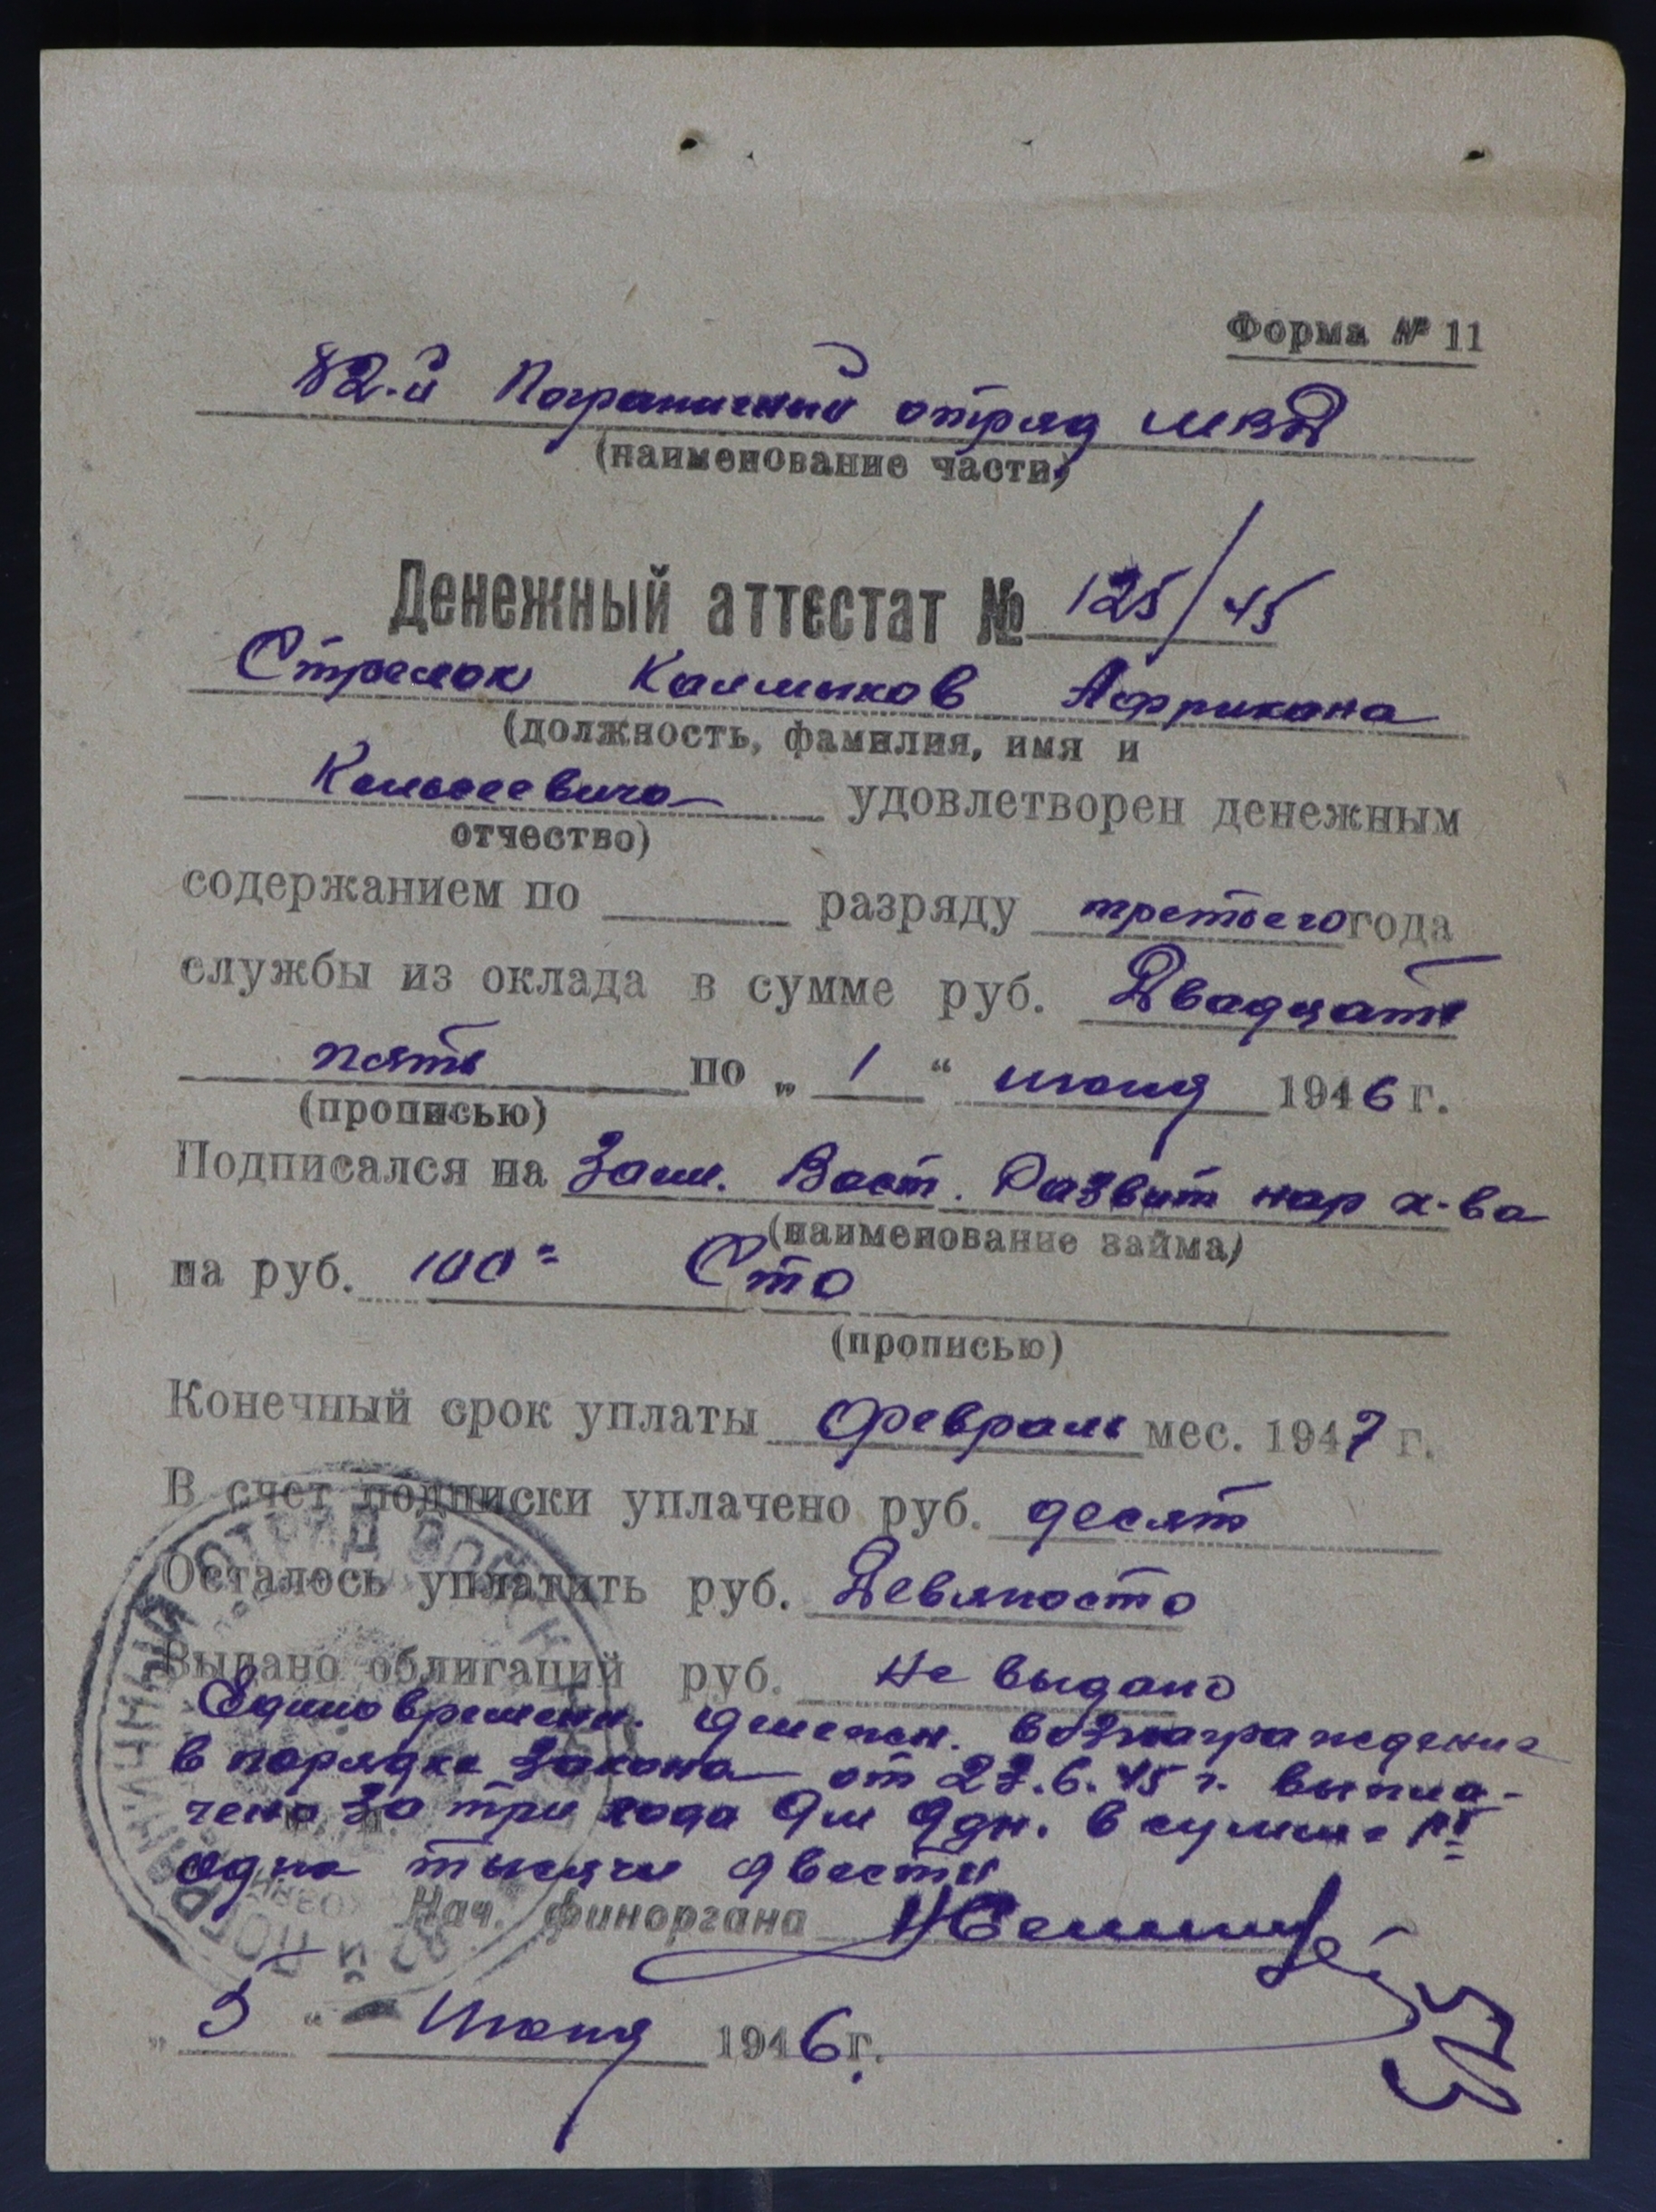 Форма № 11
82-й Пограничный отряд МВД
(наименование части)
Денежный аттестат № 125/45
Стрелок Калмыков Африкана
(должность, фамилия, имя и
удовлетворен денежным
отчество)
содержанием по разряду третьего года
службы из оклада в сумме руб. Двадцать
пять по „ 1 “ июня 1946 г.
(прописью)
Подписался на Заим. Вост. Развит нар х-ва
(наименование займа)
на руб. 100= Сто
(прописью)
Конечный срок уплаты февраль мес. 1947 г.
В счет подписки уплачено руб. десять
Осталось уплатить руб. Девяносто
Выдано облигаций руб. не выдано
Единовременн. денежн. вознаграждение
в порядке закона от 23.6.45 г. выпла-
чено за три года 9 м 9 дн. в сумме
одна тысяча двести
Нач. финоргана
„ 5 “ Июня 1946 г.
ПОГРАНИЧНЫЙ ОТРЯД ВОЙСК